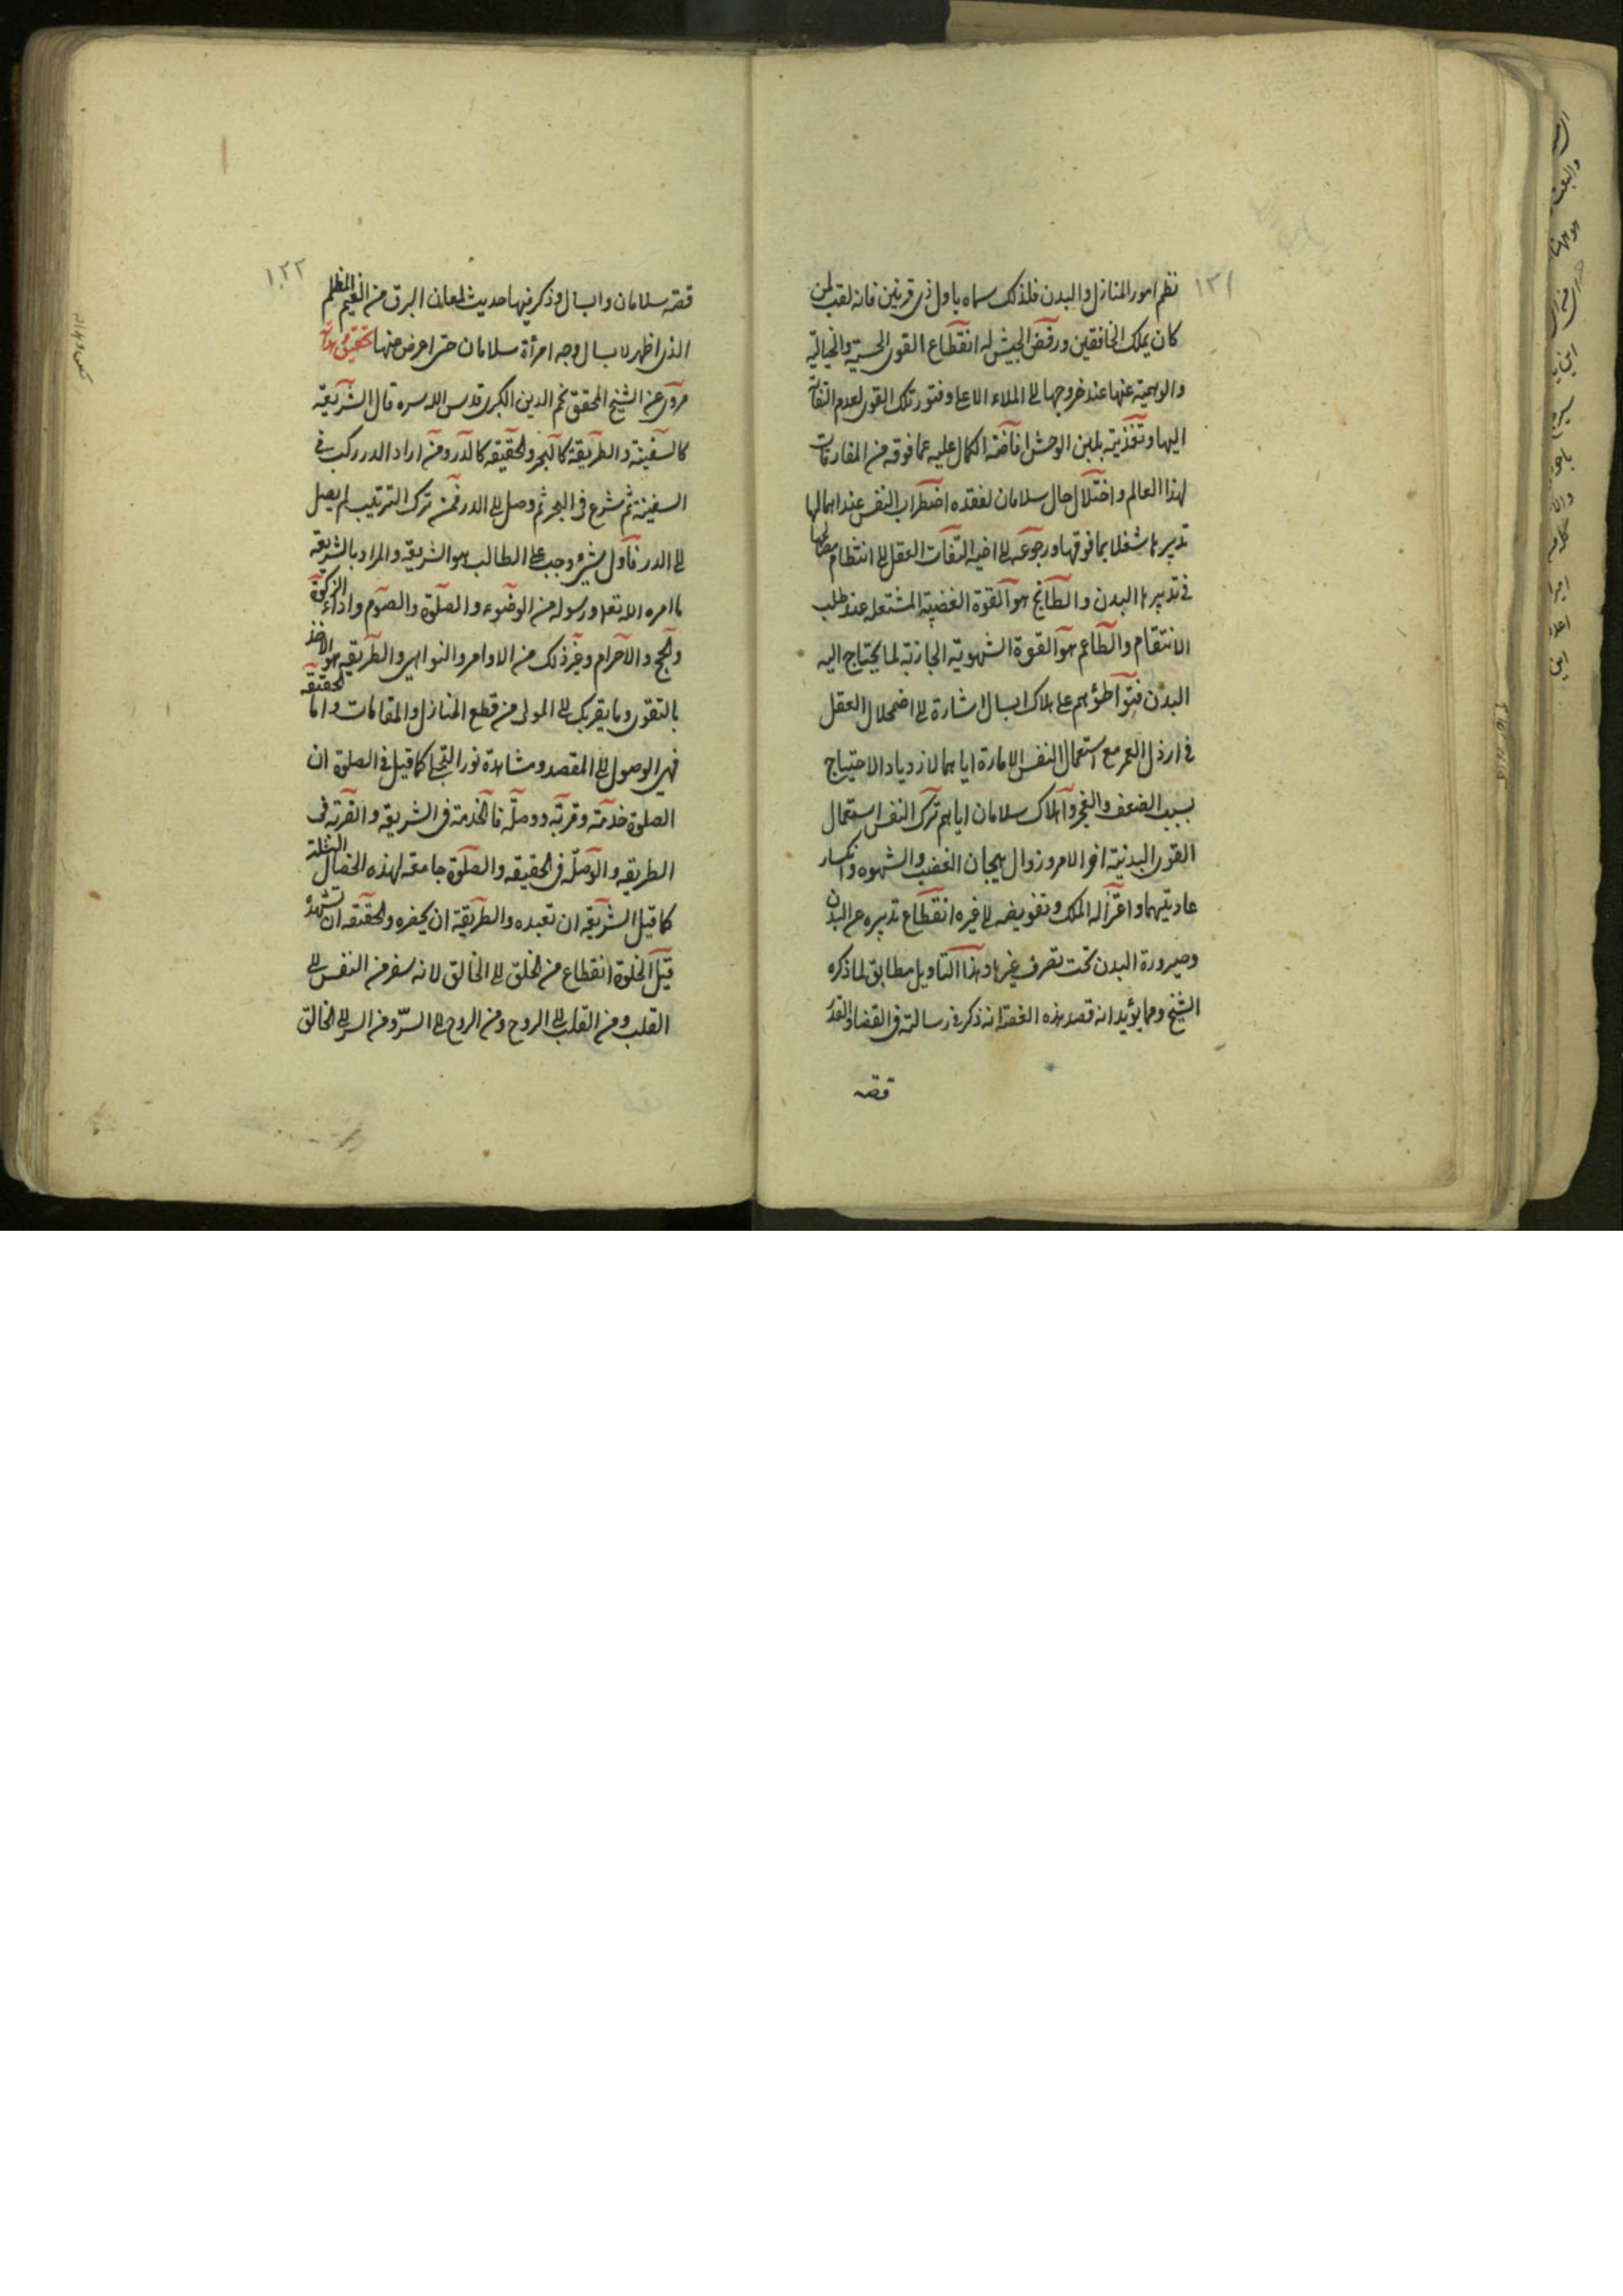 ١٢١
نظم امور المنازل والبدن فلذلك سماه باول ذى قرنين فانه لقب لمن
كان يملك الخافقين ورفض الجيش له انقطاع القوى الحسية والخيالية
والوهمية عنها عند عروجها الى الملاء الاعلى وفتور تلك القوى لعدم التفاته
اليها وتغذيته بلبن الوحش افاضة الكمال عليه عما فوقه من المفارقات
لهذا العالم واختلال حال سلامان لفقده اضطراب النفس عند اهمالها
تدبيرها شغلا بما فوقها ورجوعه الى اخيه التفات العقل الى انتظام مصالحها
فى تدبيرها البدن والطابخ هو القوة الغضبية المشتعله عند طلب
الانتقام والطاعم هو القوة الشهوية الجاذبة لما يحتاج اليه
البدن فتواطؤهم على هلاك ابسال اشارة الى اضمحلال العقل
فى ارذل العمر مع استعمال النفس الامارة اياهما لازدياد الاحتياج
بسبب الضعف والعجز واهلاك سلامان اياهم ترك النفس استعمال
القوى البدنية اخر الامر وزوال هيجان الغضب والشهوه وانكسار
عاديتهما واعتزاله الملك وتفويضه الى غيره انقطاع تدبيره عن البدن
وصيرورة البدن تحت تصرف غيرها وهذا التاويل مطابق لما ذكره
الشيخ ومما يؤيد انه قصد هذه القصة انه ذكر فى رسالته فى القضا والقدر
قصه
١٢٢
قصة سلامان وابسال وذكر فيها حديث لمعان البرق من الغيم المظلم
الذى اظهر لابسال وجه امرأة سلامان حتى اعرض عنها تحقيق
مروى عن الشيخ المحقق نجم الدين الكبرى قدس الله سره قال الشريعة
كالسفينة والطريقة كالبحر والحقيقه كالدر ومن اراد الدر ركب فى
السفينة ثم شرع فى البحر ثم وصل الى الدر فمن ترك الترتيب لم يصل
الى الدر فاول شئ وجب على الطالب هو الشريعة والمراد بالشريعة
ما امره الله تعا ورسوله من الوضوء والصلوة والصوم واداء الزكوة
والحج والاحرام وغير ذلك من الاوامر والنواهى والطريقه هو الاخذ
بالتقوى وما يقربك الى المولى من قطع المنازل والمقامات واما الحقيقه
فهى الوصول الى المقصد ومشاهدة نور التجلى كما قيل فى الصلوة ان
الصلوة خدمة وقربة ووصلة فالخدمة فى الشريعه والقربة فى
الطريقه والوصلة فى الحقيقه والصلوة جامعة لهذه الخصال الثلثة
كما قيل الشريعة ان تعبده والطريقة ان يحضره والحقيقه ان تشهده
قيل الخلوة انقطاع من الخلق الى الخالق لانه سفر من النفس الى
القلب ومن القلب الى الروح ومن الروح الى السر ومن السر الى الخالق